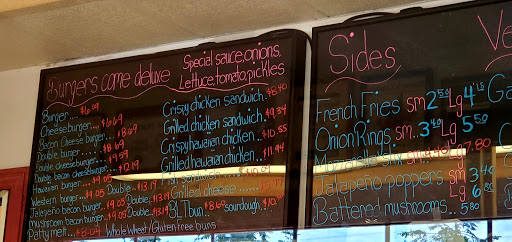 Burgers come deluxe
Special sauce, onions,
Lettuce, tomato, pickles
Burger... $6.09
Cheeseburger... $6.69
Bacon Cheese burger... $8.69
Double burger... $8.69
Double cheeseburger... $9.59
Double bacon cheeseburger... $12.19
Hawaiian burger... $9.05 Double.. $13.19
Western burger... $9.05 Double.. $13.19
Jalapeño bacon burger.. $9.05 Double.. $13.19
Mushroom bacon burger.. $9.05 Double.. $13.19
Patty melt... $8.04 Whole Wheat/Gluten free buns
Crispy chicken sandwich. $8.40
Grilled chicken sandwich. $9.84
Crispy hawaiian chicken... $10.55
Grilled hawaiian chicken... $11.94
Fish sandwich
Grilled cheese
BLT bun. $8.65 sourdough. $10.
Sides
French Fries sm 2.50 Lg 4.15
Onion Rings sm.. 3.40 Lg 5.50
Mozzarella stix sm 7.80
Jalapeño poppers sm 3 Lg 6.80
Battered mushrooms.. 5.80
Ve
Ga